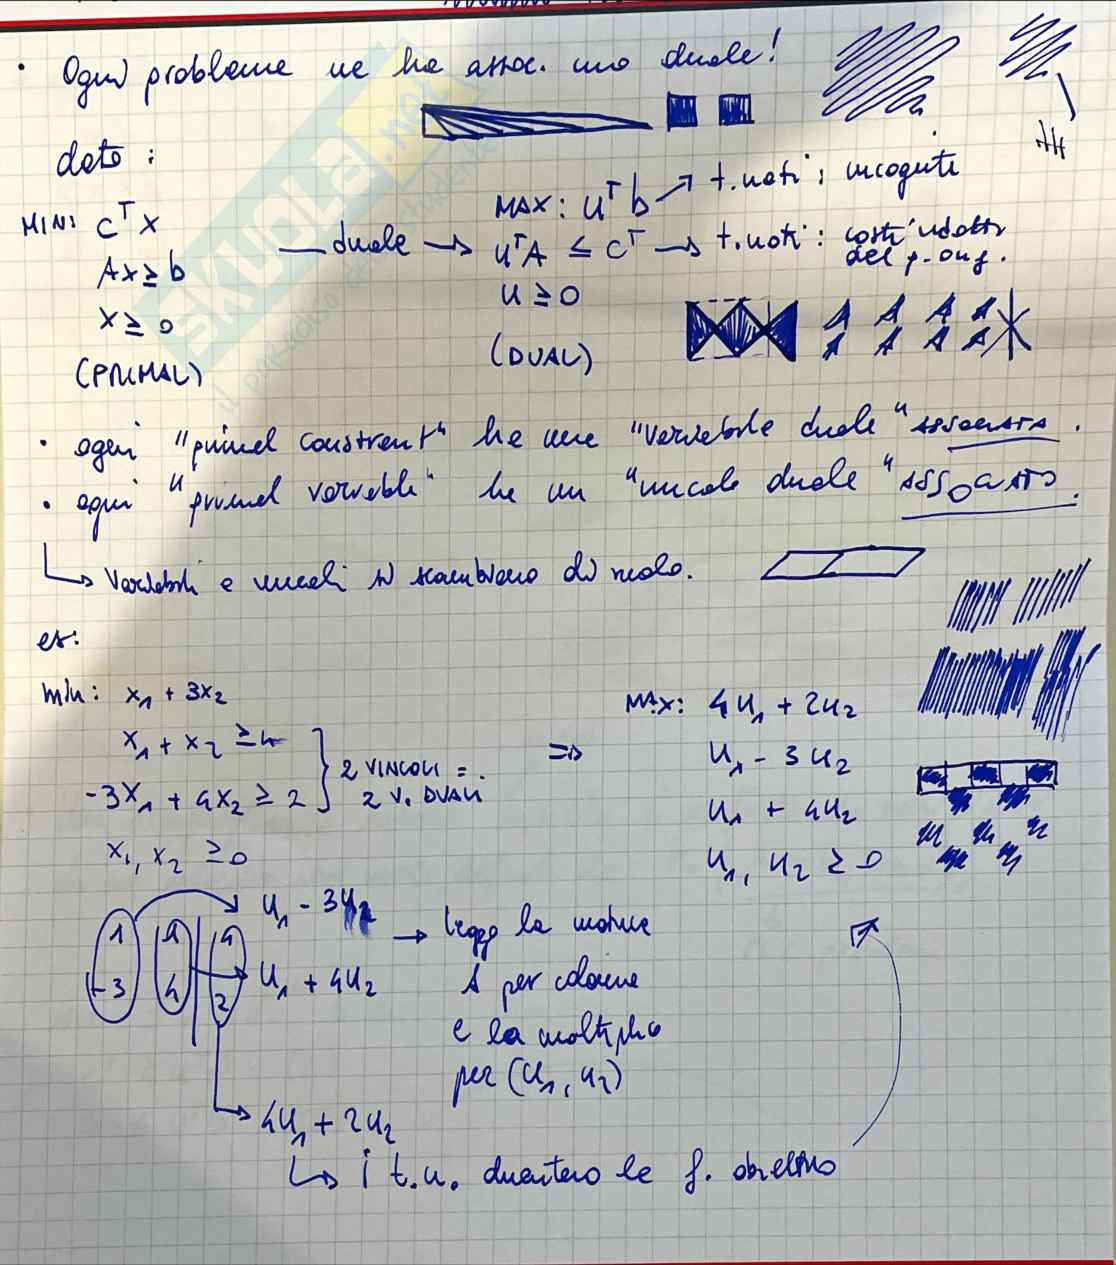 • Ogni problema ne ha assoc. uno duale!
dato:
MIN: cᵀx
Ax ≥ b
x ≥ 0
(PRIMAL)
— duale →
MAX: uᵀb → t. noti: incognite
uᵀA ≤ cᵀ → t. noti: costi ridotti
del p. orig.
u ≥ 0
(DUAL)
• ogni "primal constraint" ha una "variabile duale" ASSOCIATA.
• ogni "primal variable" ha un "vincolo duale" ASSOCIATO.
↳ Variabili e vincoli si scambiano di ruolo.
es:
min: x₁ + 3x₂
x₁ + x₂ ≥ 4
-3x₁ + 4x₂ ≥ 2
x₁, x₂ ≥ 0
} 2 VINCOLI =
2 V. DUALI
⇒
MAX: 4u₁ + 2u₂
u₁ - 3u₂
u₁ + 4u₂
u₁, u₂ ≥ 0
1 1 | 4
-3 4 | 2
u₁ - 3u₂
u₁ + 4u₂
→ leggo la matrice
A per colonne
e la moltiplico
per (u₁, u₂)
4u₁ + 2u₂
↳ i t.n. diventano la f. obiettivo
SKUOLA.net